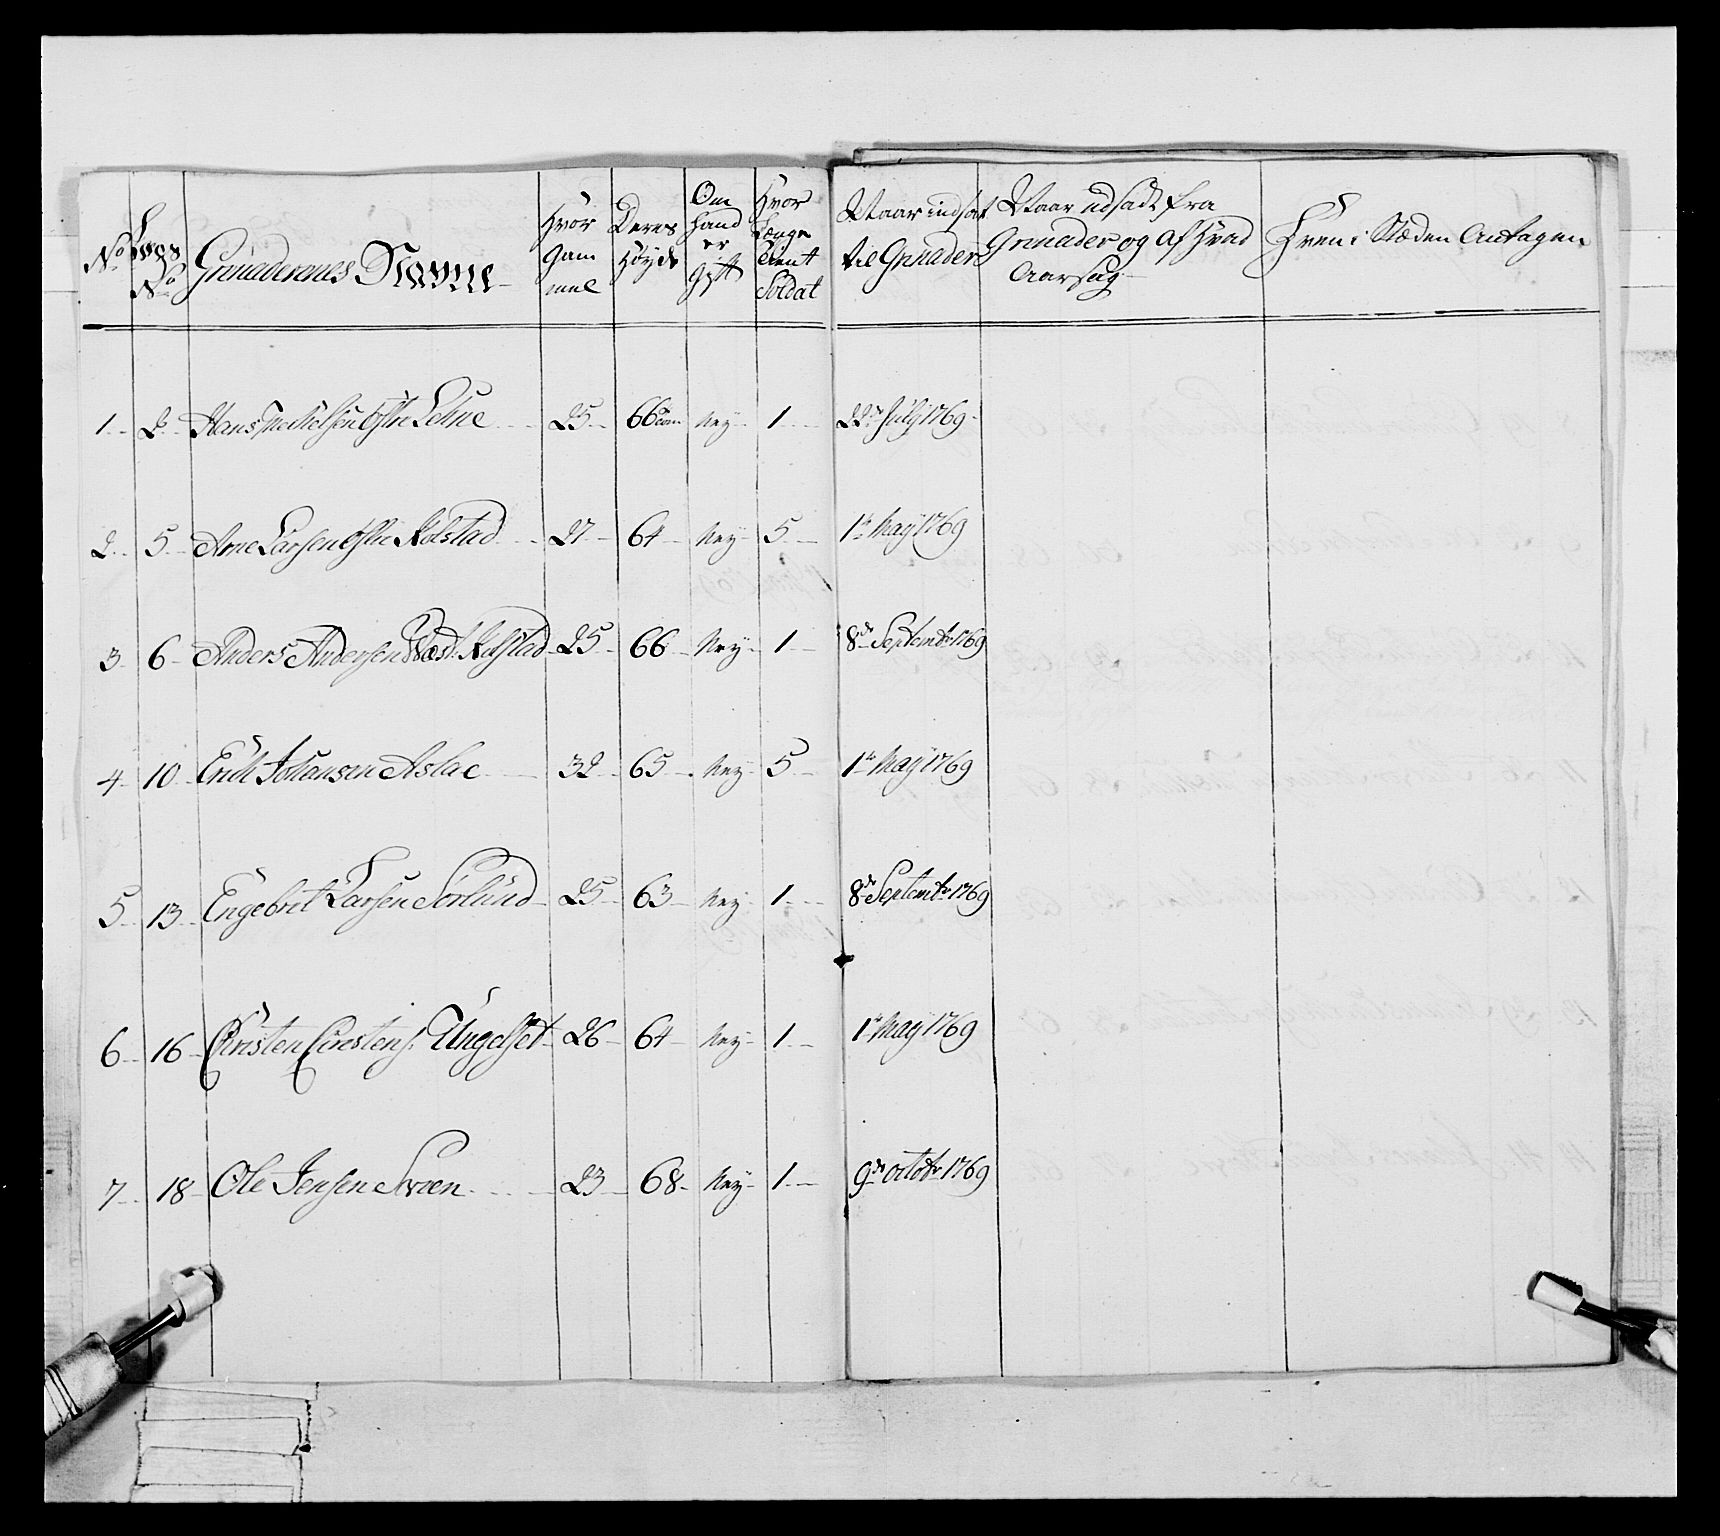 No Legs No Grenaderenes Navne Hvor Gam mel Deres Høyde Om hand er gift Hvor Længe tient Soldat Naar indsat til Grenader Naar udsadt fra Grenader og af hvad Aarsag Hven i Stæden Antagen
1 2 Hans Østre Lehne 25 66 Ney 1 22de July 1769
2 5 Arne Larsen Østre Kolstad 27 64 Ney 5 1te May 1769
3 6 Anders Andersen Væst: Kolstad 25 66 Ney 1 8de Septembr 1769
4 10 Erich Johansen Aslae 32 65 Ney 5 1te May 1769
5 13 Engebret Larsen Sørlund 25 63 Ney 1 8de Septembr 1769
6 16 Christen Cirstens: Ungelset 26 64 Ney 1 1te May 1769
7 18 Ole Jensen Sveen 23 68 Ney 1 9de octobr 1769